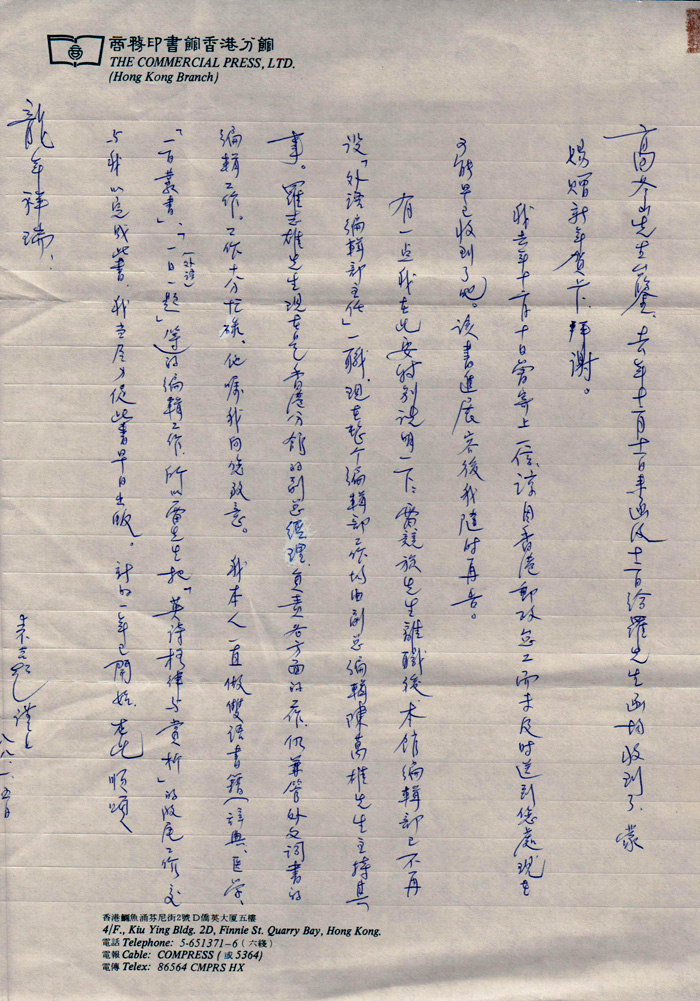 商務印書館香港分館
THE COMMERCIAL PRESS, LTD.
(Hong Kong Branch)
高冬山先生鑒：去年十二月十二日来函及十二日给羅先生函均收到了，蒙
赐赠新年賀卡，拜谢。
我去年十二月十日曾寄上一信，諒因香港郵政怠工而未及时送到您處，现在
可能早已收到了吧。该書進展容後我随时再告。
有一点我在此要特别说明一下：雷競旋先生離職後，本館編輯部已不再
设「外语編輯部主任」一職，现在整个編輯部工作均由副总編輯陳萬雄先生主持其
事。羅志雄先生现在是香港分館的副总經理，負责各方面的工作，仍兼管外文词書的
編輯工作。工作十分忙碌，他嘱我向您致意。我本人一直做雙语書籍（辞典、医学、
「一百叢書」、「一日一题」（外语）等）的編輯工作，所以雷先生把「英诗格律与赏析」的收尾工作交
与我以完成此書，我当尽力促此書早日出版。新的一年已開始，在此順頌
龍年祥瑞！
謹上
八八.一.五日
香港鰂魚涌芬尼街2號D僑英大厦五樓
4/F., Kiu Ying Bldg. 2D, Finnie St. Quarry Bay, Hong Kong.
電話 Telephone: 5-651371-6 (六綫)
電報 Cable: COMPRESS (或5364)
電傳 Telex: 86564 CMPRS HX